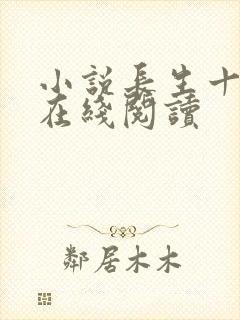 小说长生十
在綫閱讀
鄰居木木